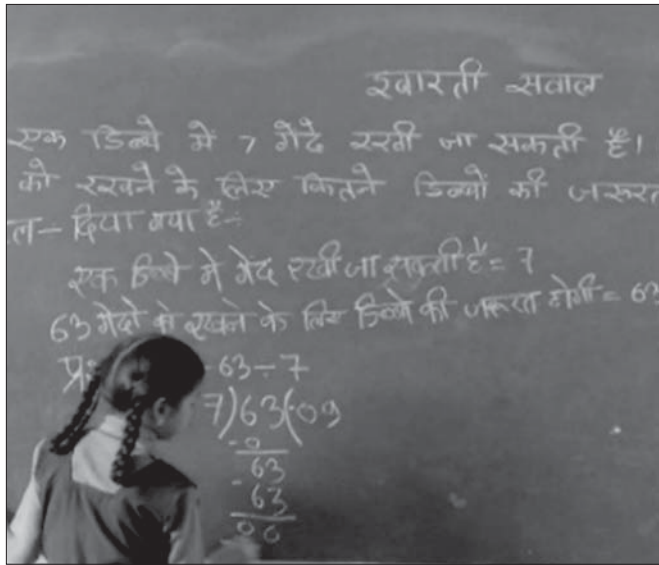 इबारती सवाल
एक डिब्बे में 7 गेंदे रखी जा सकती है।
को रखने के लिए कितने डिब्बों की जरूरत
ल- दिया गया है ÷
एक डिब्बे मे गेंद रखी जा सकती है = 7
63 गेंदो को रखने के लिए डिब्बे की जरूरत होगी = 63
63 ÷ 7
7)63(09
-0
63
-63
00